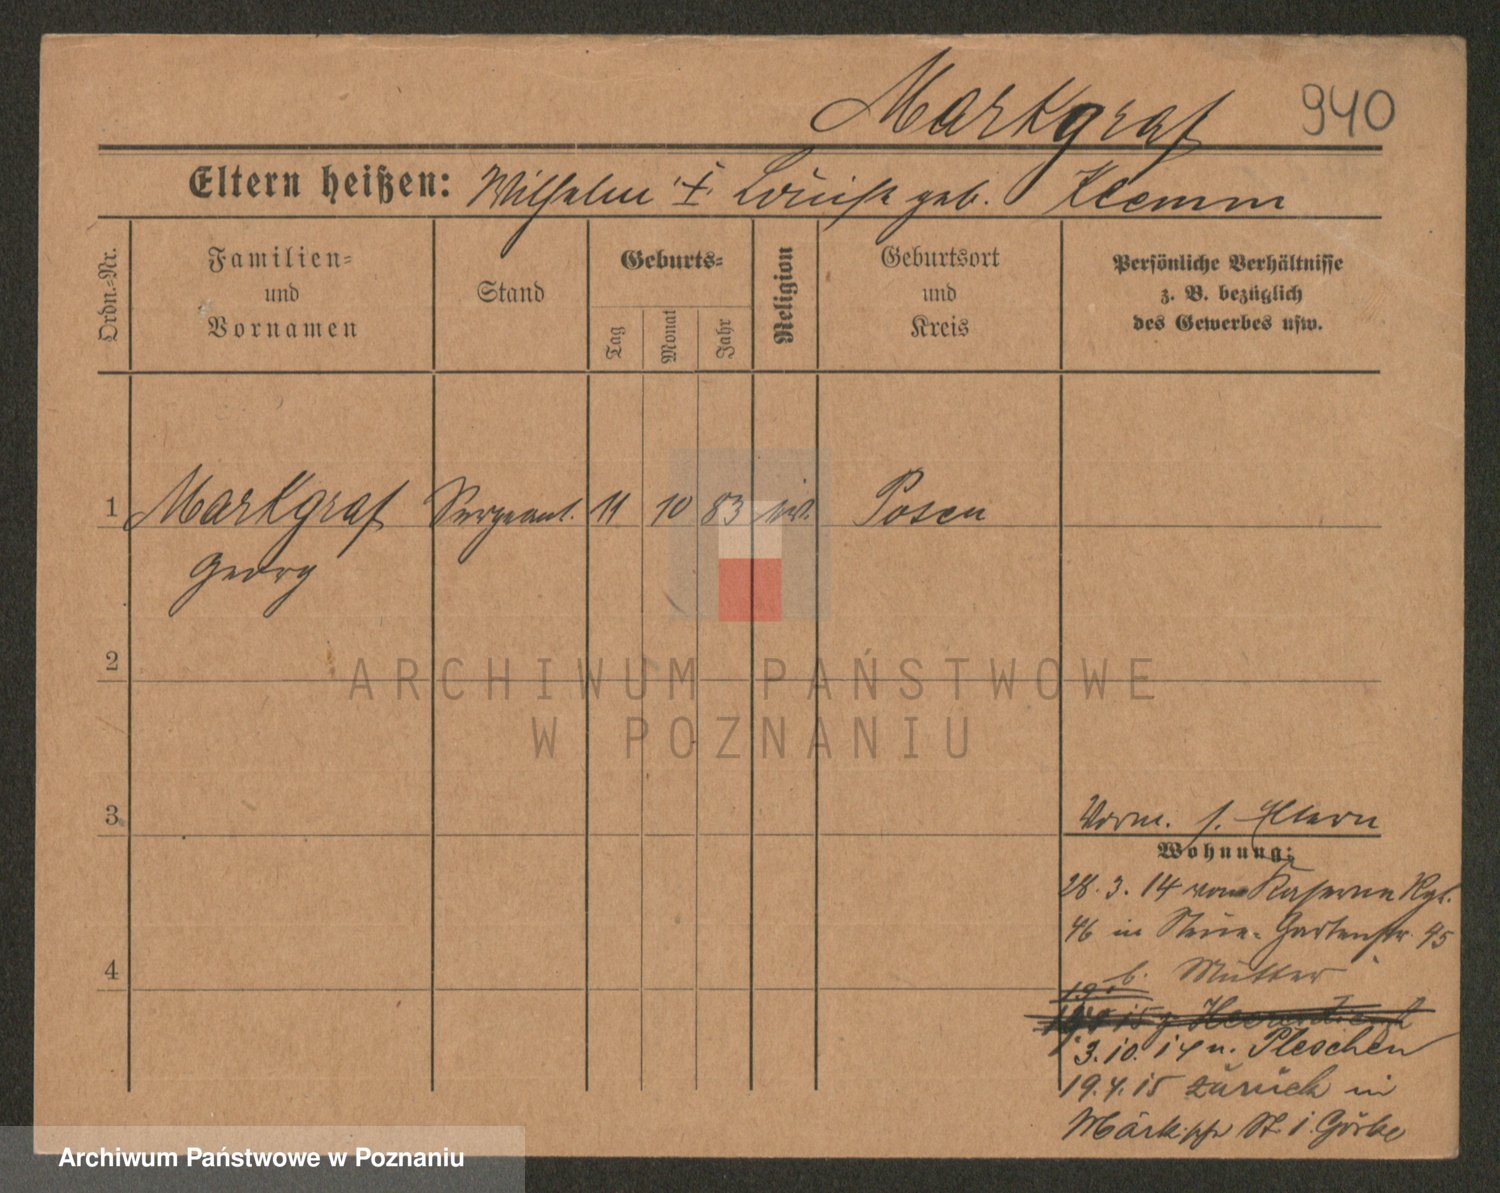 Markgraf 940
Eltern heißen: Wilhelm † Louise geb. Klemm
Ordn.=Nr.
Familien=
und
Vornamen
Stand
Geburts=
Tag
Monat
Jahr
Religion
Geburtsort
und
Kreis
Persönliche Verhältnisse
z. B. bezüglich
des Gewerbes usw.
1 Markgraf Sergeant. 11 10 83 Posen
Georg
2
3
4
Vorm. s. Eltern
Wohnung:
28. 3. 14 von Kaserne Rgt.
46 in Gartenstr. 95
b. Mutter
3. 10. 14 n. Pleschen
19. 4. 15 zurück in
Märkische St. i. Görbe
ARCHIWUM PAŃSTWOWE
W POZNANIU
Archiwum Państwowe w Poznaniu